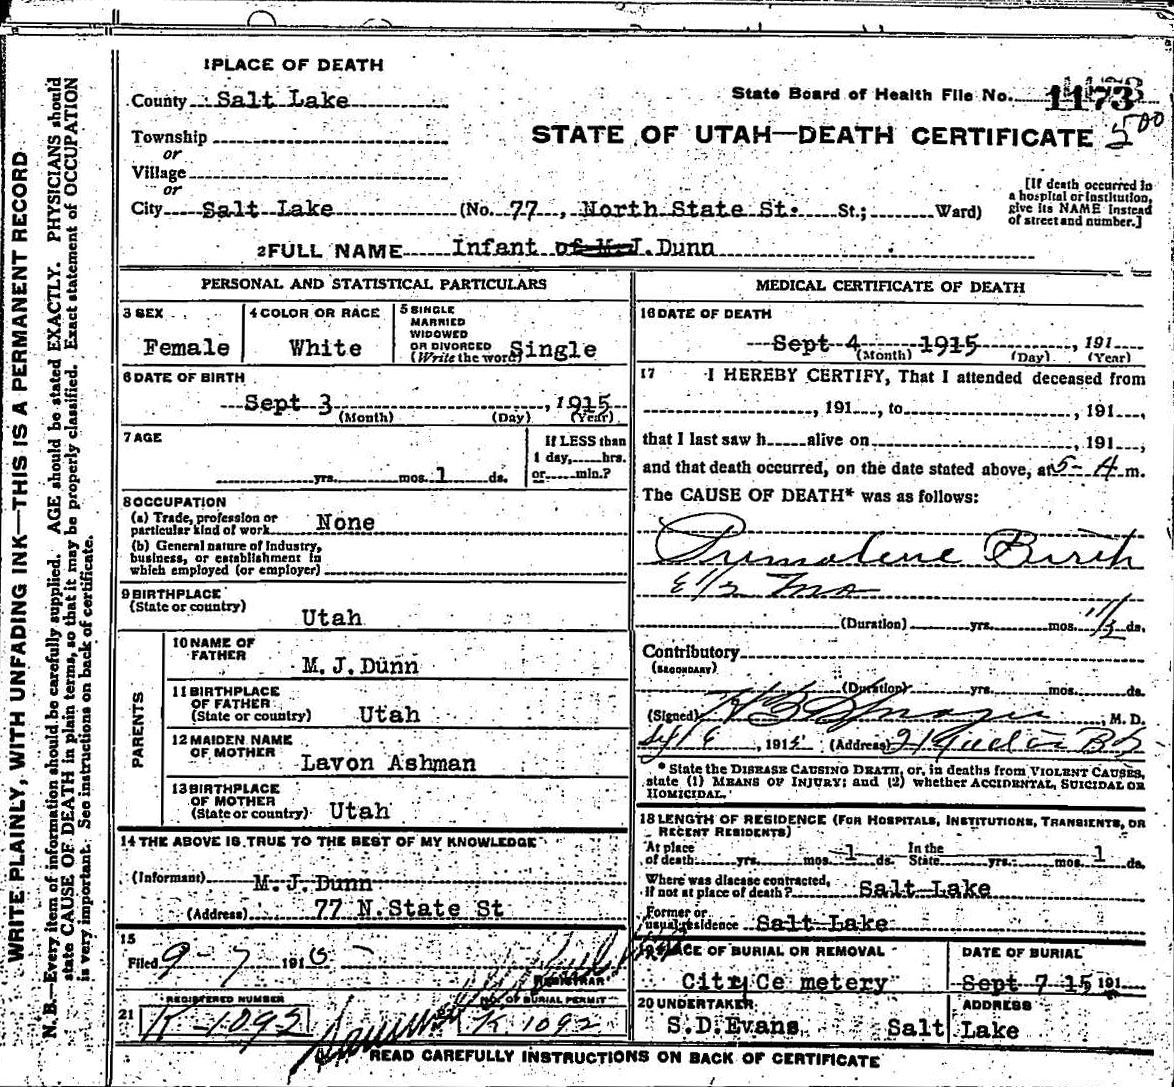 1 PLACE OF DEATH
County Salt Lake
State Board of Health File No. 1173
STATE OF UTAH—DEATH CERTIFICATE 500
Township
or
Village
or
City Salt Lake (No. 77, North State St. St.; Ward)
[If death occurred in a hospital or institution, give its NAME instead of street and number.]
2 FULL NAME Infant of M.J.Dunn
PERSONAL AND STATISTICAL PARTICULARS
3 SEX
Female
4 COLOR OR RACE
White
5 SINGLE
MARRIED
WIDOWED
OR DIVORCED
(Write the word) Single
6 DATE OF BIRTH
Sept 3, 1915
(Month) (Day) (Year)
7 AGE
yrs. mos. 1 ds.
If LESS than
1 day, hrs.
or min.?
8 OCCUPATION
(a) Trade, profession or
particular kind of work None
(b) General nature of Industry,
business, or establishment in
which employed (or employer)
9 BIRTHPLACE
(State or country)
Utah
PARENTS
10 NAME OF
FATHER
M.J.Dunn
11 BIRTHPLACE
OF FATHER
(State or country) Utah
12 MAIDEN NAME
OF MOTHER
Lavon Ashman
13 BIRTHPLACE
OF MOTHER
(State or country) Utah
14 THE ABOVE IS TRUE TO THE BEST OF MY KNOWLEDGE
(Informant) M.J.Dunn
(Address) 77 N.State St
15
Filed 9-7 191
REGISTRAR
REGISTERED NUMBER
21 K-1092
NO. OF BURIAL PERMIT
K 1092
MEDICAL CERTIFICATE OF DEATH
16 DATE OF DEATH
Sept 4 1915, 191
(Month) (Day) (Year)
17 I HEREBY CERTIFY, That I attended deceased from
, 191, to , 191,
that I last saw h alive on , 191,
and that death occurred, on the date stated above, at 5-A m.
The CAUSE OF DEATH* was as follows:
Birth
(Duration) yrs. mos. ds.
Contributory
(SECONDARY)
(Duration) yrs. mos. ds.
(Signed) , M. D.
, 1915 (Address)
* State the DISEASE CAUSING DEATH, or, in deaths from VIOLENT CAUSES,
state (1) MEANS OF INJURY; and (2) whether ACCIDENTAL, SUICIDAL OR
HOMICIDAL.
18 LENGTH OF RESIDENCE (FOR HOSPITALS, INSTITUTIONS, TRANSIENTS, OR
RECENT RESIDENTS)
At place
of death yrs. mos. 1 ds.
In the
State yrs. mos. 1 ds.
Where was disease contracted,
if not at place of death? Salt Lake
Former or
usual residence Salt Lake
19 PLACE OF BURIAL OR REMOVAL
City Ce metery
DATE OF BURIAL
Sept 7 15 191
20 UNDERTAKER
S.D.Evans Salt
ADDRESS
Lake
READ CAREFULLY INSTRUCTIONS ON BACK OF CERTIFICATE
WRITE PLAINLY, WITH UNFADING INK—THIS IS A PERMANENT RECORD
N. B.—Every item of information should be carefully supplied. AGE should be stated EXACTLY. PHYSICIANS should
state CAUSE OF DEATH in plain terms, so that it may be properly classified. Exact statement of OCCUPATION
is very important. See instructions on back of certificate.